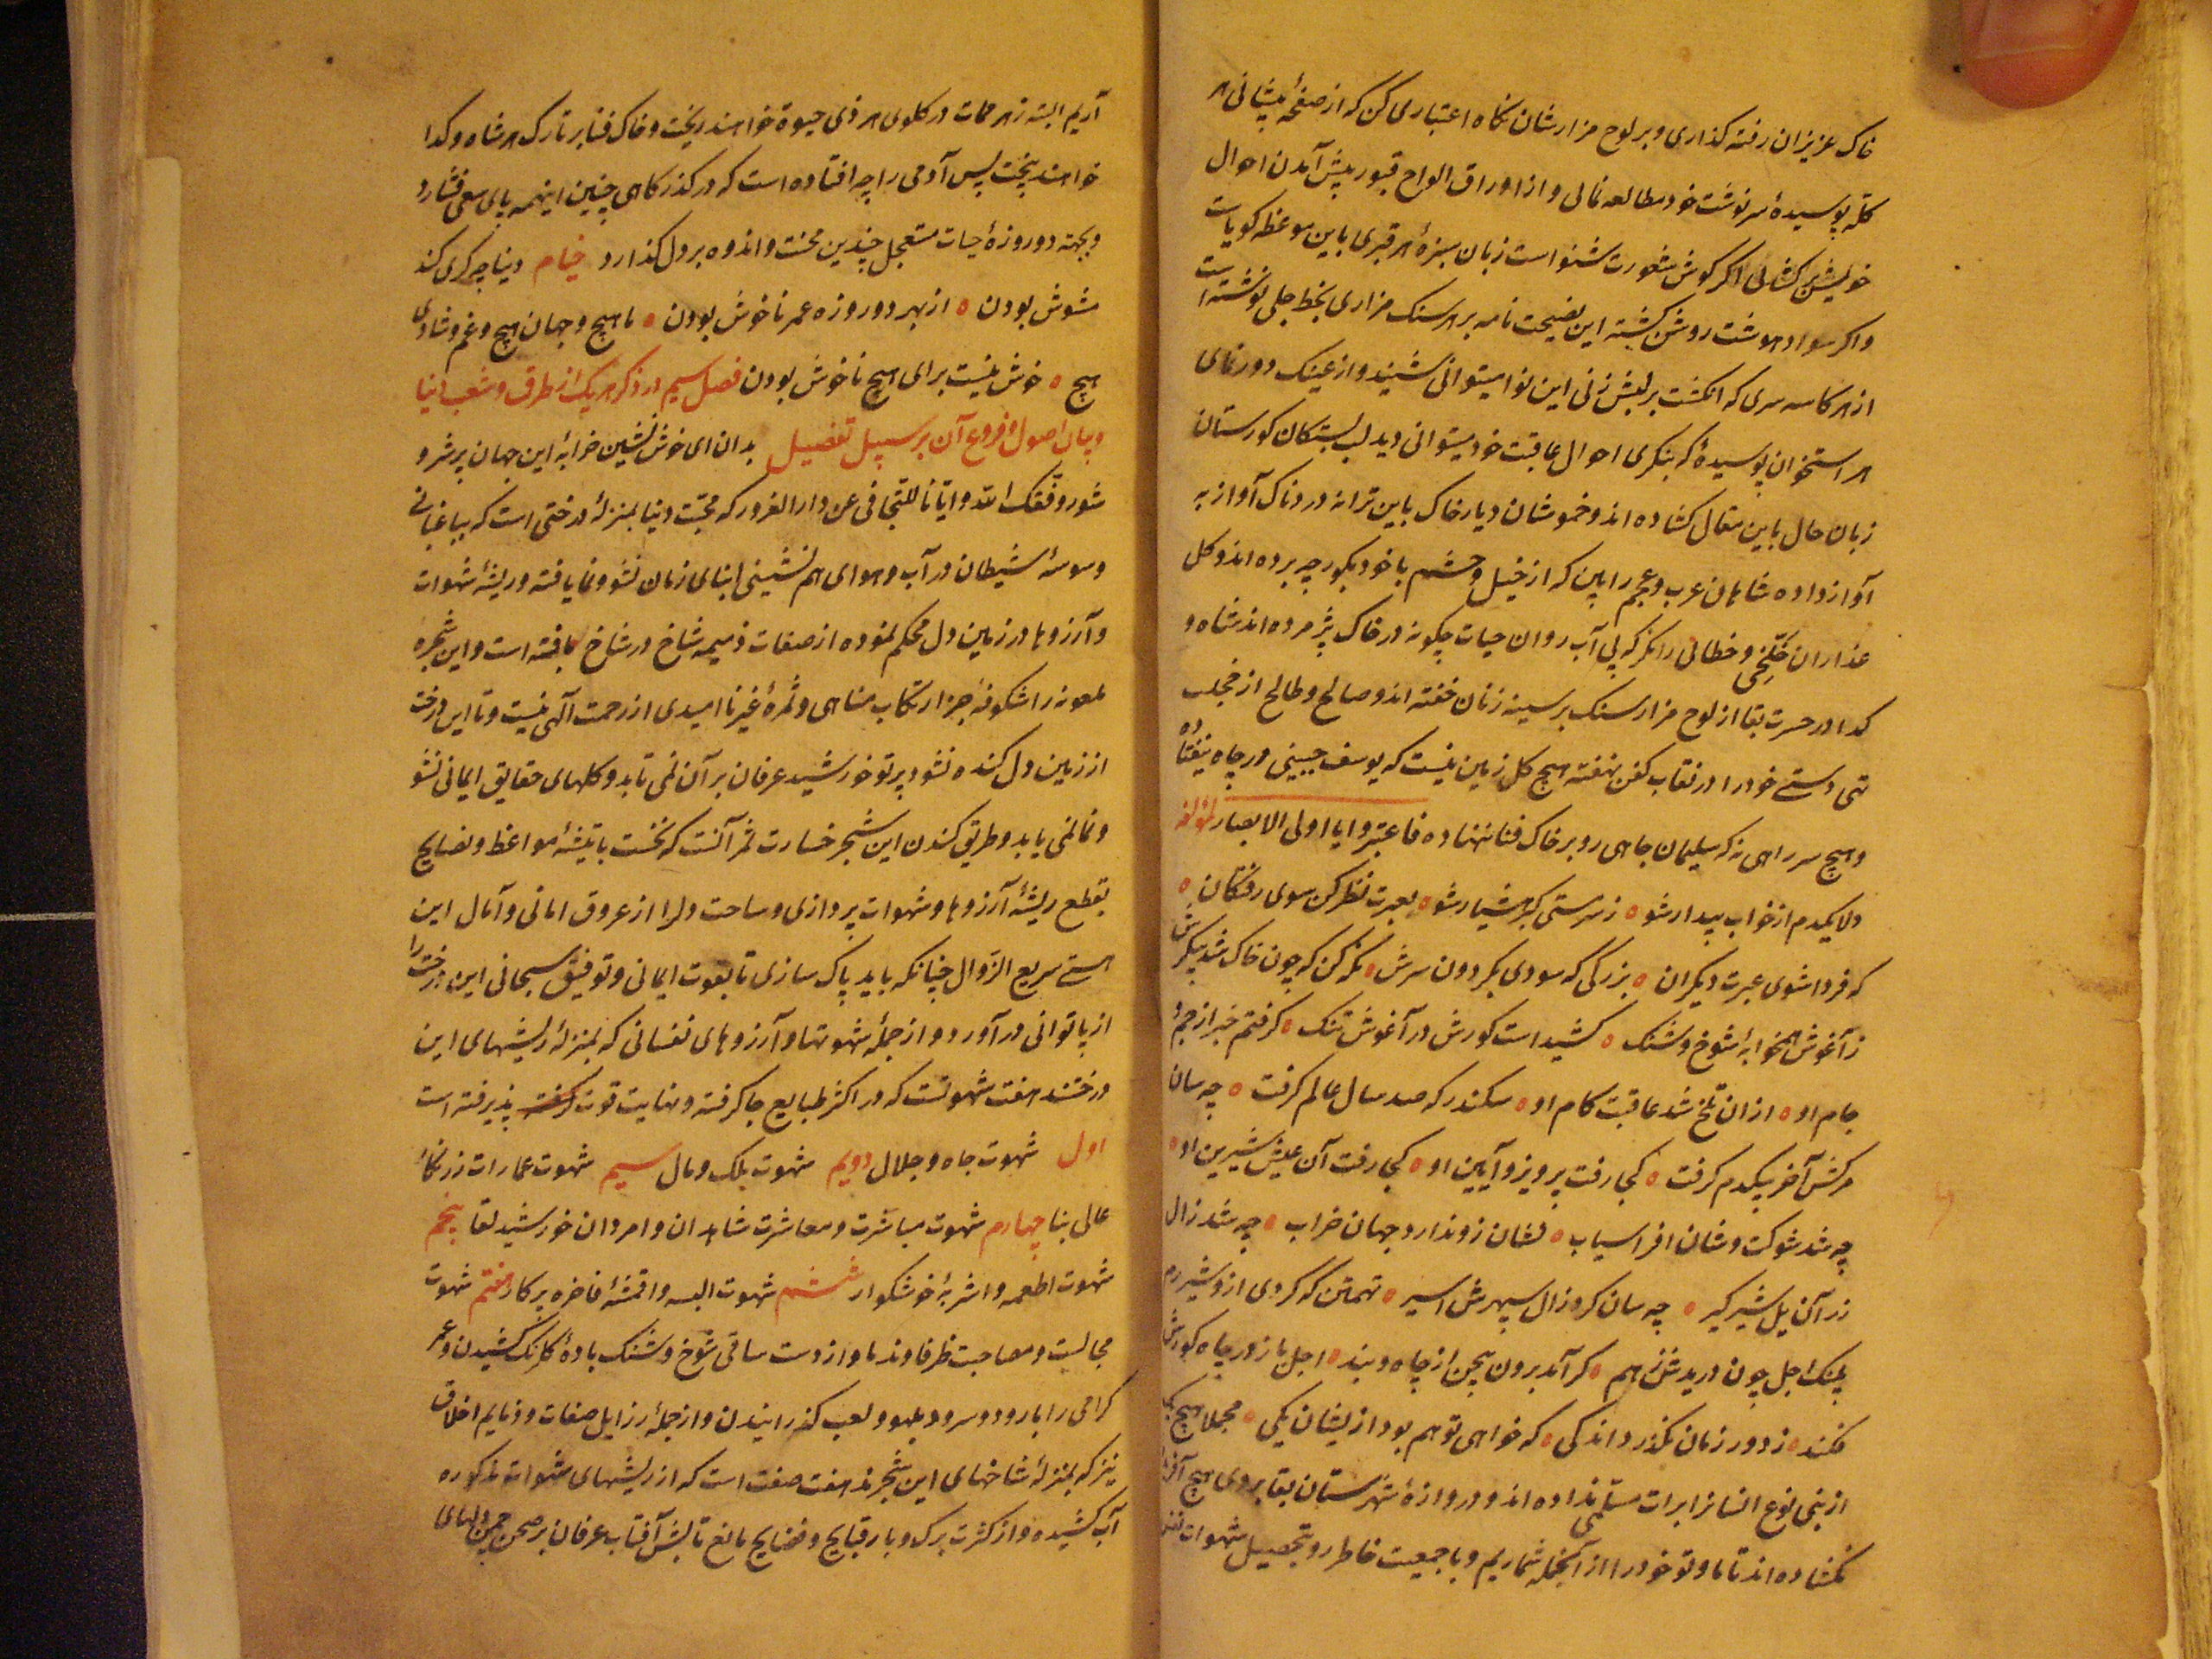 خاک عزیزان رفته کذاری و بر لوح مزارشان نکاه اعتباری کن که از صفحهٔ پیشانی هر
کلّه پوسیدهٔ سرنوشت خود مطالعه نمائی و از اوراق الواح قبور پیش آمدن احوال
خویشتن کشائی اکر کوش شعورت شنواست زبان سبزهٔ هر قبری باین موعظه کویاست
و اکر سواد هوشت روشن کشته این نصیحت نامه بر هر سنک مزاری بخط جلی نوشته است
از هر کاسه سری که انکشت برلبش زنی این نوا میتوانی شنید و از عینک دورنمای
هر استخوان پوسیدهٔ که بنکری احوال عاقبت خود میتوانی دید لب بستکان کورستان
زبان حال باین مقال کشاده اند و خموشان دیار خاک باین ترانه دردناک آواز به
آواز داده شاهان عرب و عجم را ببین که از خیل و حشم با خود بکور چه برده اند و کل
عذاران خلّخی و خطائی را نکر که بی آب روان حیات چکونه در خاک پژمرده اند شاه و
کدا در حسرت بقا از لوح مزار سنک بر سینه زنان خفته اند و صالح و طالح از خجلت
تهی دستی خود را در نقاب کفن نهفته هیچ کل زمین نیست که یوسف جبینی در چاه نیفتاده
و هیچ سر راهی نه که سلیمان جاهی رو بر خاک فنا ننهاده فاعتبروا یا اولی الابصار لمؤلفه
دلا یکدم از خواب بیدار شو ه ز سرمستی کبر هشیار شو ه بعبرت نظر کن سوی رفتکان ه
که فردا شوی عبرت دیکران ه بزرکی که سودی بکردون سرش ه نکر کن که چون خاک شد پیکرش
ز آغوش همخوابهٔ شوخ و شنک ه کشید است کورش در آغوش تنک ه کرفتم خبر از جم و
جام او ه از ان تلخ شد عاقبت کام او ه سکندر که صد سال عالم کرفت ه چه سان
مرکش آخر بیکدم کرفت ه کجا رفت پرویز و آیین او ه کجا رفت آن عیش شیرین او ه
چه شد شوکت و شان افراسیاب ه نشان زو ندارد جهان خراب ه چه شد زال
زر آن یل شیر کیر ه چه سان کرد زال سپهرش اسیر ه تهمتن که کردی ازو شیر رم
پلنک اجل چون دریدش ز هم ه کر آمد برون بیجن از چاه و بند ه اجل باز در چاه کورش
فکند ه ز دور زمان نکذرد اندکی ه که خواهی تو هم بود ازیشان یکی ه مجملا هیچ یک
از بنی نوع انسانرا برات مسلّمی نداده اند و دروازهٔ شهرستان بقا بروی هیچ آفریده
نکشاده اند تا ما و تو خود را از آنجمله شماریم و با جمعیت خاطر رو بتحصیل شهوات
آریم البته زهر ممات در کلوی هر ذی حیوة خواهند ریخت و خاک فنا بر تارک هر شاه و کدا
خواهند بیخت پس آدمی را چه افتاده است که در کذرکاهی چنین اینهمه پای سعی فشارد
و بجهته دو روزهٔ حیات مستعجل چندین محنت و اندوه بر دل کذارد خیام دنیا چه کری کند
مشوش بودن ه از بهر دو روزه عمر ناخوش بودن ه ما هیچ و جهان هیچ و غم و شادی
هیچ ه خوش نیست برای هیچ ناخوش بودن فصل سیم در ذکر هر یک از طرق و شعب دنیا
و بیان اصول و فروع آن بر سبیل تفصیل بدان ای خوش نشین خرابهٔ این جهان پر شر و
شور وفّقک الله و ایّانا للتّجافی عن دار الغرور که محبّت دنیا بمنزلهٔ درختی است که بباغبانی
وسوسهٔ شیطان در آب و هوای هم نشینی ابنای زمان نشو و نما یافته و ریشهٔ شهوات
و آرزوها در زمین دل محکم نموده از صفات ذمیمه شاخ در شاخ بافته است و این شجره
ملعونه را شکوفهٔ جز ارتکاب مناهی و ثمرهٔ غیر ناامیدی از رحمت آلهی نیست و تا این درخت
از زمین دل کنده نشود پرتو خورشید عرفان بر آن نمی تابد و کلهای حقایق ایمانی نشو
و نما نمی یابد و طریق کندن این شجر خسارت ثمر آنست که نخست باتیشهٔ مواعظ و نصایح
بقطع ریشهٔ آرزوها و شهوات پردازی و ساحت دلرا از عروق امانی و آمال این
هستی سریع الزّوال چنانکه باید پاک سازی تا بقوت ایمانی و توفیق سبحانی این درخت را
از پا توانی در آورد و از جملهٔ شهوتها و آرزوهای نفسانی که بمنزلهٔ ریشهای این
درختند هفت شهوتست که در اکثر طبایع جا کرفته و نهایت قوت پذیرفته است
اول شهوت جاه و جلال دویم شهوت ملک و مال سیم شهوت عمارات زرنکار
عالی بنا چهارم شهوت مباشرت و معاشرت شاهدان و امردان خورشید لقا پنجم
شهوت اطعمه و اشربهٔ خوشکوار ششم شهوت البسه و اقمشهٔ فاخره پرکار هفتم شهوت
مجالست و مصاحبت ظرفا و ندما و از دست ساقی شوخ و شنک بادهٔ کلرنک کشیدن و عمر
کرامی را با رود و سرود بلهو و لعب کذرانیدن و از جملهٔ رزایل صفات و ذمایم اخلاق
نیز که بمنزلهٔ شاخهای این شجرند هفت صفت است که از ریشهای شهوات مذکوره
آب کشیده و از کثرت برک و بار قبایح و فضایح مانع تابش آفتاب عرفان بر صحن چمن دلهای